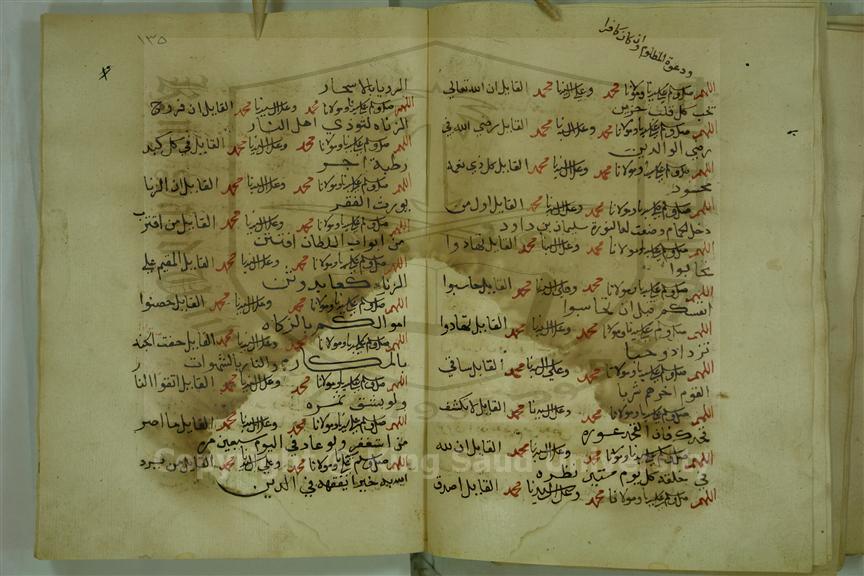 ودعوة المظلوم وان كان كافرا
اللهم صل وسلم على سيدنا ومولانا محمد وعلى ال سيدنا محمد القايل ان الله تعالى
يحب كل قلب حزين
اللهم صل وسلم على سيدنا ومولانا محمد وعلى ال سيدنا محمد القايل رضى الله في
رضى الوالدين
اللهم صل وسلم على سيدنا ومولانا محمد وعلى ال سيدنا محمد القايل كل ذي نعمة
محسود
اللهم صل وسلم على سيدنا ومولانا محمد وعلى ال سيدنا محمد القايل اول من
دخل الحمام وضعت له النورة سليمان بن داود
اللهم صل وسلم على سيدنا ومولانا محمد وعلى ال سيدنا محمد القايل تهادوا
تحابوا
اللهم صل وسلم على سيدنا ومولانا محمد وعلى ال سيدنا محمد القايل حاسبوا
انفسكم قبل ان تحاسبوا
اللهم صل وسلم على سيدنا ومولانا محمد وعلى ال سيدنا محمد القايل تهادوا
تزدادوا حبا
اللهم صل وسلم على سيدنا ومولانا محمد وعلى ال سيدنا محمد القايل ساقي
القوم اخرهم شربا
اللهم صل وسلم على سيدنا ومولانا محمد وعلى ال سيدنا محمد القايل لا تكشف
فخدك فان الفخد عورة
اللهم صل وسلم على سيدنا ومولانا محمد وعلى ال سيدنا محمد القايل ان لله
في خلقه كل يوم ستين نظرة
اللهم صل وسلم على سيدنا ومولانا محمد وعلى ال سيدنا محمد القايل اصدق
١٣٥
الرويا بالاسحار
اللهم صل وسلم على سيدنا ومولانا محمد وعلى ال سيدنا محمد القايل ان فروج
الزناه لتوذي اهل النار
اللهم صل وسلم على سيدنا ومولانا محمد وعلى ال سيدنا محمد القايل في كل كبد
رطبة اجر
اللهم صل وسلم على سيدنا ومولانا محمد وعلى ال سيدنا محمد القايل ان الزنا
يورث الفقر
اللهم صل وسلم على سيدنا ومولانا محمد وعلى ال سيدنا محمد القايل من اقترب
من ابواب السلطان افتتن
اللهم صل وسلم على سيدنا ومولانا محمد وعلى ال سيدنا محمد القايل المقيم على
الزناه كعابد وثن
اللهم صل وسلم على سيدنا ومولانا محمد وعلى ال سيدنا محمد القايل حصنوا
اموالكم بالزكاه
اللهم صل وسلم على سيدنا ومولانا محمد وعلى ال سيدنا محمد القايل حفت الجنه
بالمكاره والنار بالشهوات
اللهم صل وسلم على سيدنا ومولانا محمد وعلى ال سيدنا محمد القايل اتقوا النار
ولو بشق تمره
اللهم صل وسلم على سيدنا ومولانا محمد وعلى ال سيدنا محمد القايل ما اصر
من استغفر ولو عاد في اليوم سبعين مره
اللهم صل وسلم على سيدنا ومولانا محمد وعلى ال سيدنا محمد القايل من يرد
الله به خيرا يفقهه في الدين